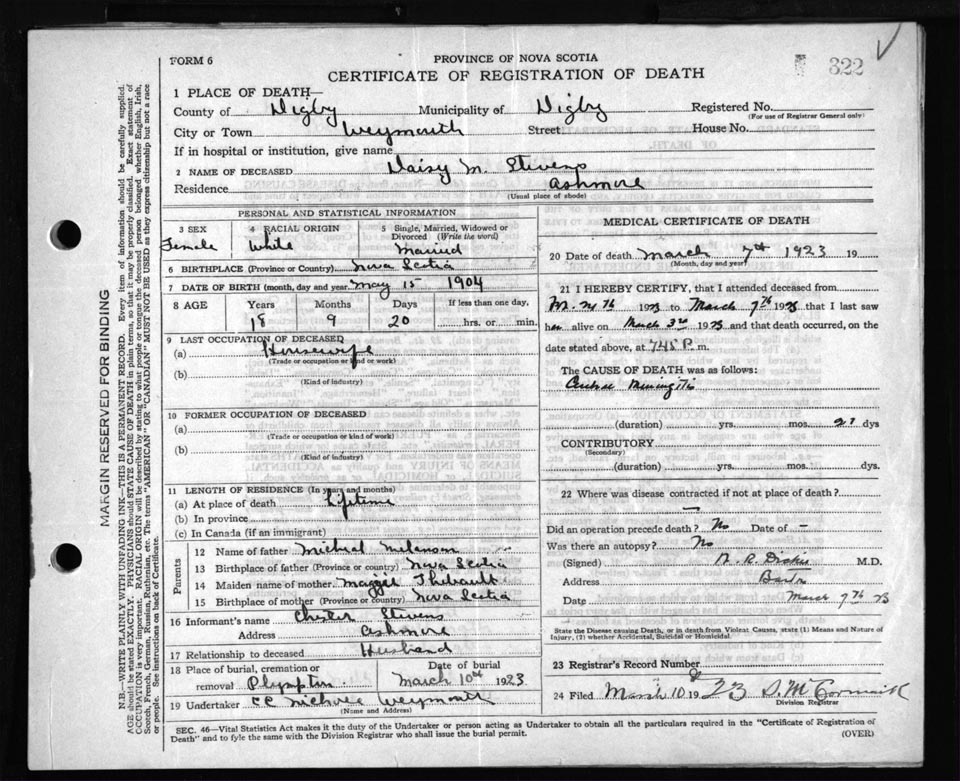 322
FORM 6
PROVINCE OF NOVA SCOTIA
CERTIFICATE OF REGISTRATION OF DEATH
1 PLACE OF DEATH—
County of Digby Municipality of Digby Registered No.
(For use of Registrar General only)
City or Town Weymouth Street House No.
If in hospital or institution, give name
2 NAME OF DECEASED Daisy M. Stevens
Residence Ashmore
(Usual place of abode)
PERSONAL AND STATISTICAL INFORMATION
3 SEX Female
4 RACIAL ORIGIN White
5 Single, Married, Widowed or Divorced (Write the word) Married
6 BIRTHPLACE (Province or Country) Nova Scotia
7 DATE OF BIRTH (month, day and year) May 15 1904
8 AGE Years Months Days If less than one day,
18 9 20 hrs. or min.
9 LAST OCCUPATION OF DECEASED
(a) Housewife
(Trade or occupation or kind or work)
(b)
(Kind of industry)
10 FORMER OCCUPATION OF DECEASED
(a)
(Trade or occupation and kind of work)
(b)
(Kind of industry)
11 LENGTH OF RESIDENCE (In years and months)
(a) At place of death Lifetime
(b) In province
(c) In Canada (if an immigrant)
Parents
12 Name of father Michael Melanson
13 Birthplace of father (Province or country) Nova Scotia
14 Maiden name of mother Maggie Thibault
15 Birthplace of mother (Province or country) Nova Scotia
16 Informant's name Chester Stevens
Address Ashmore
17 Relationship to deceased Husband
18 Place of burial, cremation or removal Plympton
Date of burial March 10th 1923
19 Undertaker Weymouth
(Name and Address)
MEDICAL CERTIFICATE OF DEATH
20 Date of death March 7th 1923 19
(Month, day and year)
21 I HEREBY CERTIFY, that I attended deceased from
1923 to March 7th 1923 that I last saw
her alive on March 3rd 1923 and that death occurred, on the
date stated above, at 7 45 P. m.
The CAUSE OF DEATH was as follows:
Meningitis
(duration) yrs. mos. 21 dys
CONTRIBUTORY
(Secondary)
(duration) yrs. mos. dys.
22 Where was disease contracted if not at place of death?
—
Did an operation precede death? No Date of –
Was there an autopsy? No
(Signed) M.D.
Address Barton
Date March 7th 23
State the Disease causing Death, or in death from Violent Causes, state (1) Means and Nature of
Injury, (2) whether Accidental, Suicidal or Homicidal.
23 Registrar's Record Number
24 Filed March 10 1923 D. McCormick
Division Registrar
SEC. 46—Vital Statistics Act makes it the duty of the Undertaker or person acting as Undertaker to obtain all the particulars required in the "Certificate of Registration of
Death" and to fyle the same with the Division Registrar who shall issue the burial permit.
(OVER)
MARGIN RESERVED FOR BINDING
N.B.—WRITE PLAINLY WITH UNFADING INK—THIS IS A PERMANENT RECORD. Every item of information should be carefully supplied.
AGE should be stated EXACTLY. PHYSICIANS should STATE CAUSE OF DEATH in plain terms, so that it may be properly classified. Exact statement of
OCCUPATION is very important. RACIAL ORIGIN will be described by stating to what people or tongue the deceased person belonged whether English, Irish,
Scotch, French, German, Russian, Ruthenian, etc. The terms "AMERICAN" or "CANADIAN" MUST NOT BE USED as they express citizenship but not a race
or people. See instructions on back of Certificate.